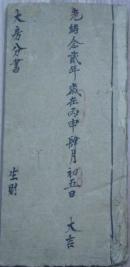 光緒念貳年歲在丙申肆月初五日 大吉
大房分書
生財